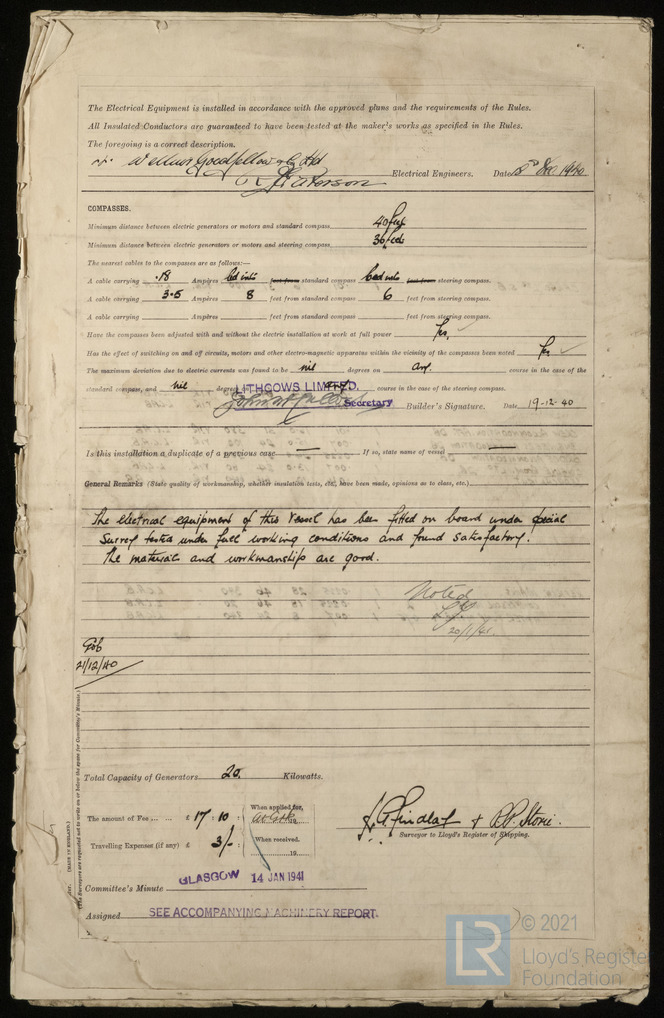 The Electrical Equipment is installed in accordance with the approved plans and the requirements of the Rules.
All Insulated Conductors are guaranteed to have been tested at the maker's works as specified in the Rules.
The foregoing is a correct description.
Goodfellow & Co Ltd
Paterson Electrical Engineers. Date Dec 1940
COMPASSES.
Minimum distance between electric generators or motors and standard compass 40 feet
Minimum distance between electric generators or motors and steering compass 36 feet
The nearest cables to the compasses are as follows:—
A cable carrying .18 Ampères led into feet from standard compass led into feet from steering compass.
A cable carrying 3.5 Ampères 8 feet from standard compass 6 feet from steering compass.
A cable carrying Ampères feet from standard compass feet from steering compass.
Have the compasses been adjusted with and without the electric installation at work at full power Yes.
Has the effect of switching on and off circuits, motors and other electro-magnetic apparatus within the vicinity of the compasses been noted Yes
The maximum deviation due to electric currents was found to be nil degrees on any. course in the case of the
standard compass, and nil degrees on any course in the case of the steering compass.
LITHGOWS LIMITED.
Secretary Builder's Signature. Date 19-12-40
Is this installation a duplicate of a previous case — If so, state name of vessel —
General Remarks (State quality of workmanship, whether insulation tests, etc., have been made, opinions as to class, etc.)
The electrical equipment of this Vessel has been fitted on board under special
Survey tested under full working conditions and found satisfactory.
The materials and workmanship are good.
Noted
20/1/41
21/12/40
Total Capacity of Generators 20. Kilowatts.
The amount of Fee ... ... £ 17 : 10 : When applied for,
19
Travelling Expenses (if any) £ 3/- : When received.
19
Findlay & Storie.
Surveyor to Lloyd's Register of Shipping.
Committee's Minute GLASGOW 14 JAN 1941
Assigned SEE ACCOMPANYING MACHINERY REPORT.
(MADE IN ENGLAND.)
(The Surveyors are requested not to write on or below the space for Committee's Minute.)
LR © 2021
Lloyd's Register
Foundation